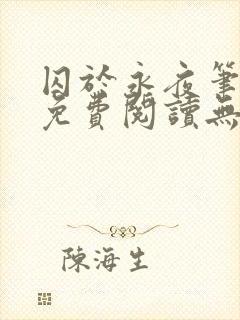 囚於永夜筆
免費閱讀無
陳海生